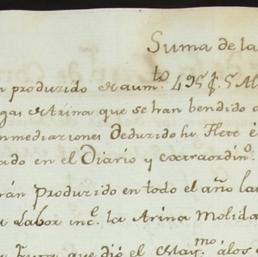 Suma de la
n produzido el aum.to 495 f. 5 Al
gas de Arina que se han bendido a
nmediaciones Deduzido he Flete é
ado en el Diario y extraordin.o
rán Produzido en todo el año la
a Labor inc.e la Arina Molida
que dió el May.mo álos